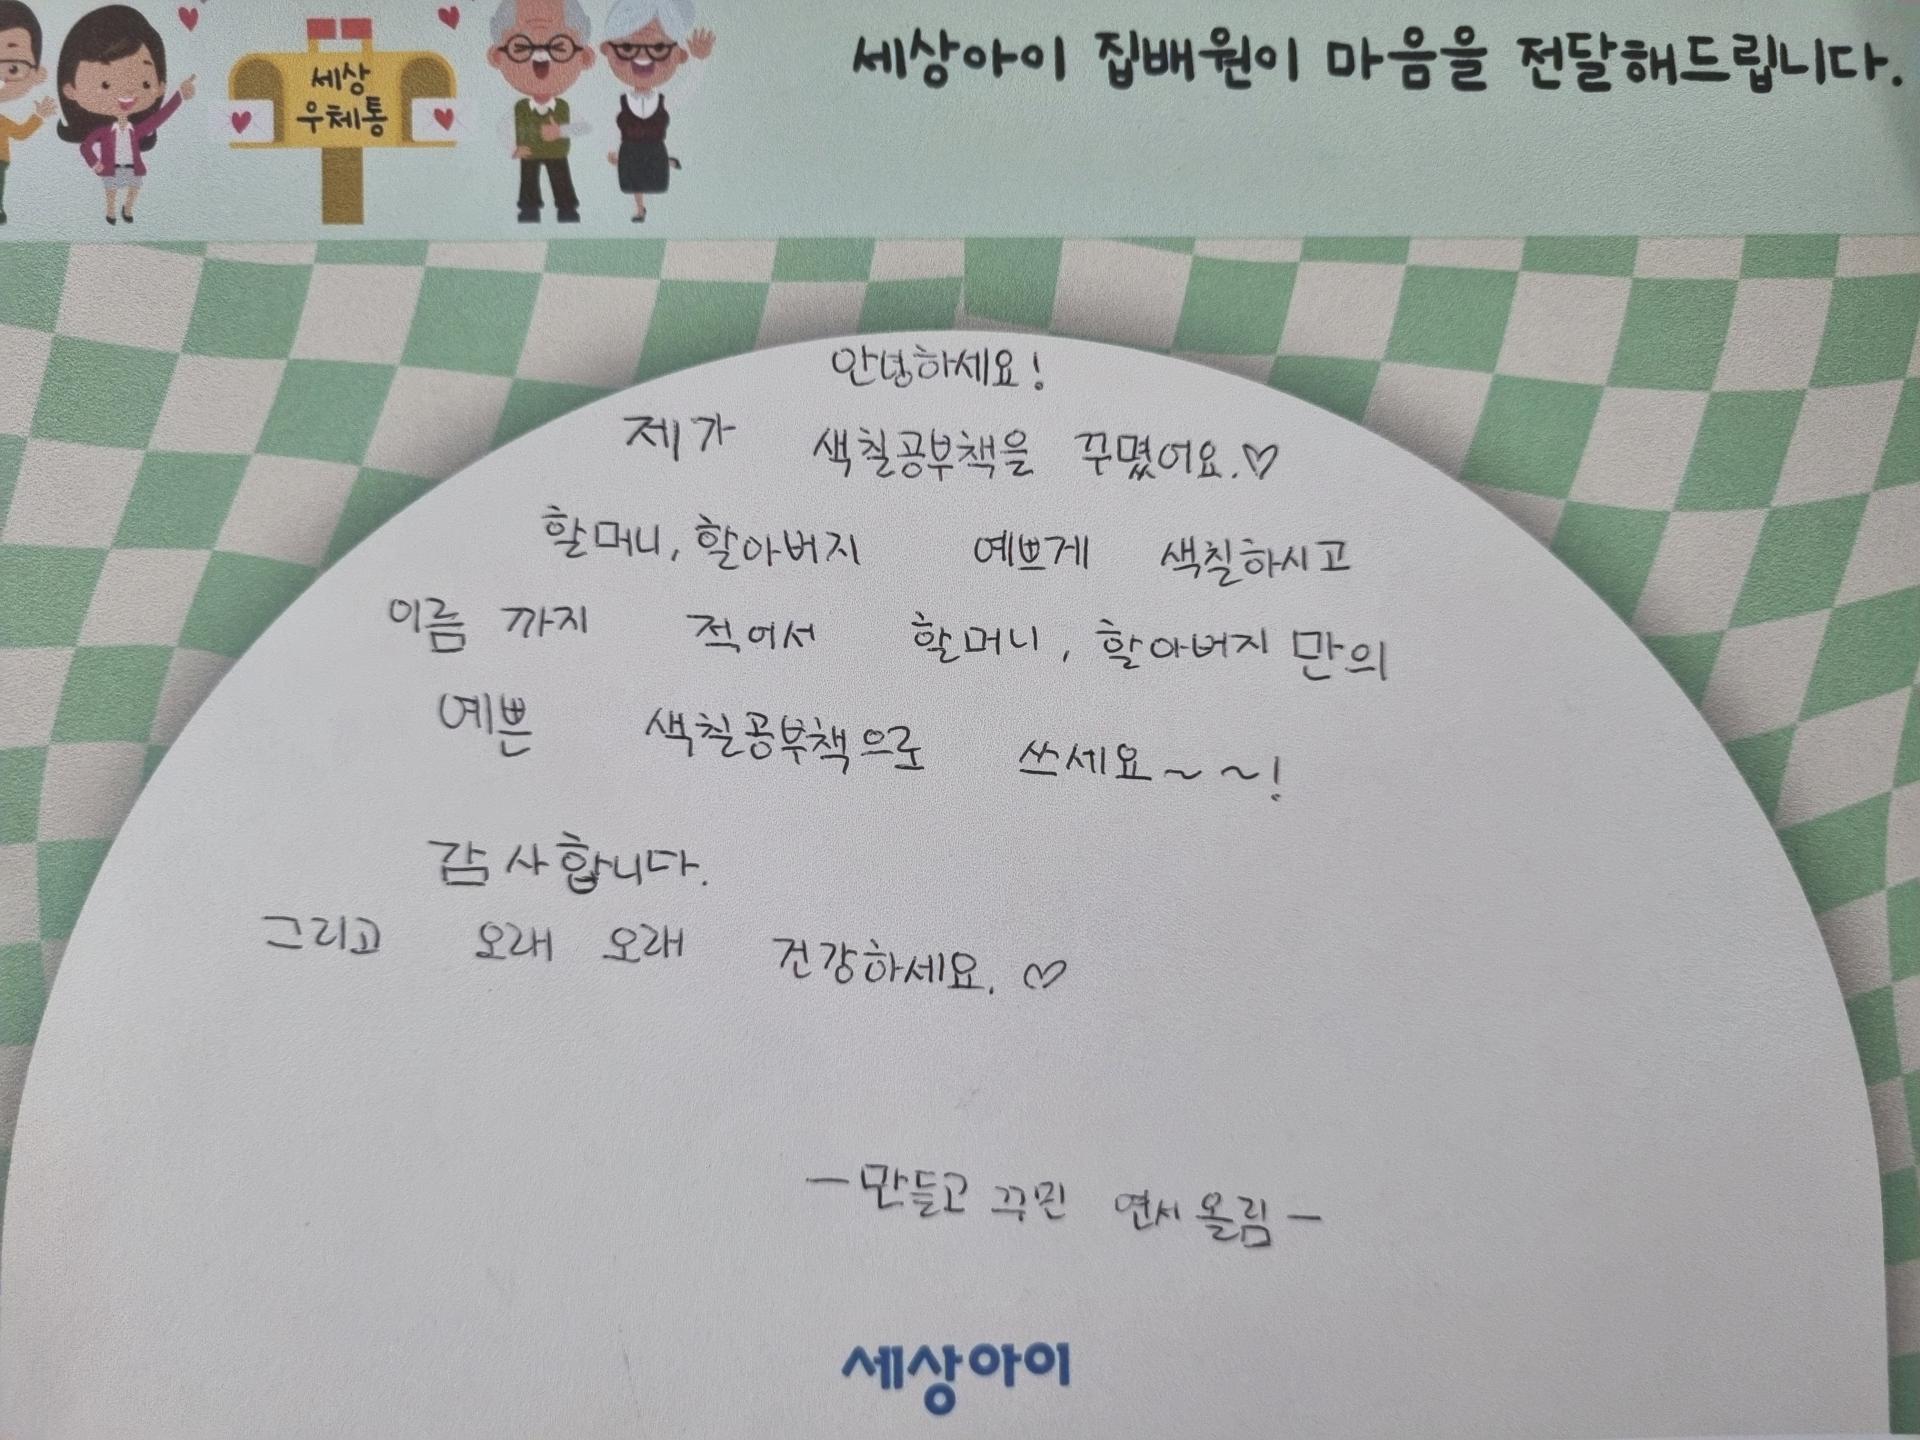 세상아이 집배원이 마음을 전달해드립니다.
세상
우체통
안녕하세요!
제가 색칠공부책을 꾸몄어요.♡
할머니, 할아버지 예쁘게 색칠하시고
이름 까지 적어서 할머니, 할아버지 만의
예쁜 색칠공부책으로 쓰세요~~!
감사합니다.
그리고 오래 오래 건강하세요. ♡
-만들고 꾸민 연서 올림-
세상아이